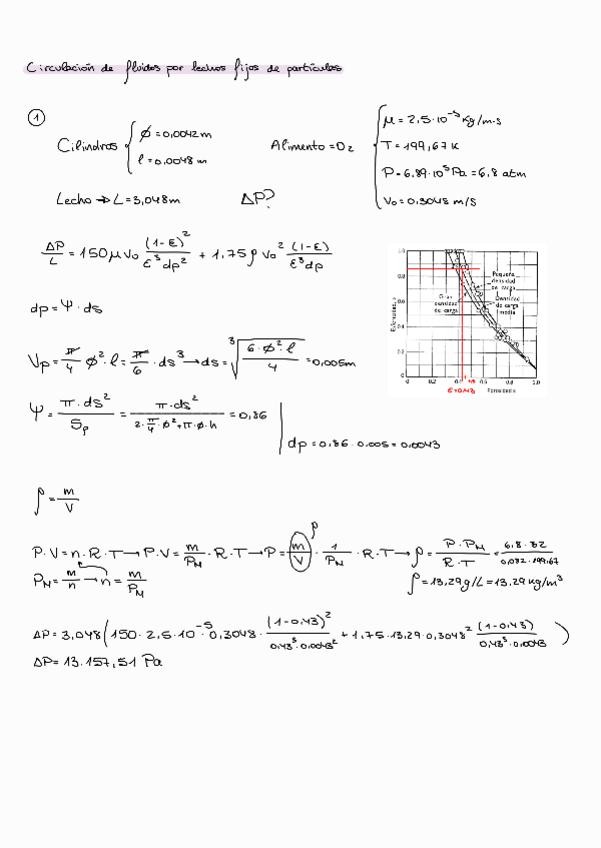 Circulación de fluidos por lechos fijos de partículas
①
Cilindros { ϕ = 0,0042 m
l = 0,0048 m
Alimento = O₂
{ μ = 2,5·10⁻⁵ Kg/m·s
T = 199,67 K
P = 6,89·10⁵ Pa = 6,8 atm
V₀ = 0,3048 m/s
Lecho → L = 3,048 m ΔP?
ΔP/L = 150 μ V₀ (1-ε)²/(ε³ dp²) + 1,75 ρ V₀² (1-ε)/(ε³ dp)
dp = Ψ · ds
Vp = π/4 ϕ² · l = π/6 · ds³ → ds = ∛(6·ϕ²·l/4) = 0,005m
Ψ = π·ds²/Sp = π·ds²/(2·π/4·ϕ² + π·ϕ·h) = 0,86
dp = 0,86 · 0,005 = 0,0043
Pequeña densidad de carga
Gran densidad de carga
Densidad de carga media
Esfericidad
Porosidad
ε = 0,43
ρ = m/V
P·V = n·R·T → P·V = m/PM · R·T → P = m/V · 1/PM · R·T → ρ = P·PM/(R·T) = 6,8·32/(0,082·199,67)
ρ
PM = m/n → n = m/PM
ρ = 13,29 g/L = 13,29 kg/m³
ΔP = 3,048 (150 · 2,5·10⁻⁵ · 0,3048 · (1-0,43)²/(0,43³ · 0,0043²) + 1,75·13,29·0,3048² (1-0,43)/(0,43³ · 0,0043))
ΔP = 13.157,51 Pa